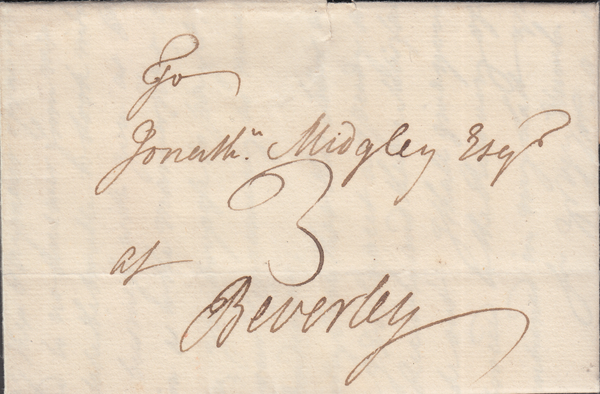 To
Jonathn. Midgley Esqr
3
at
Beverley